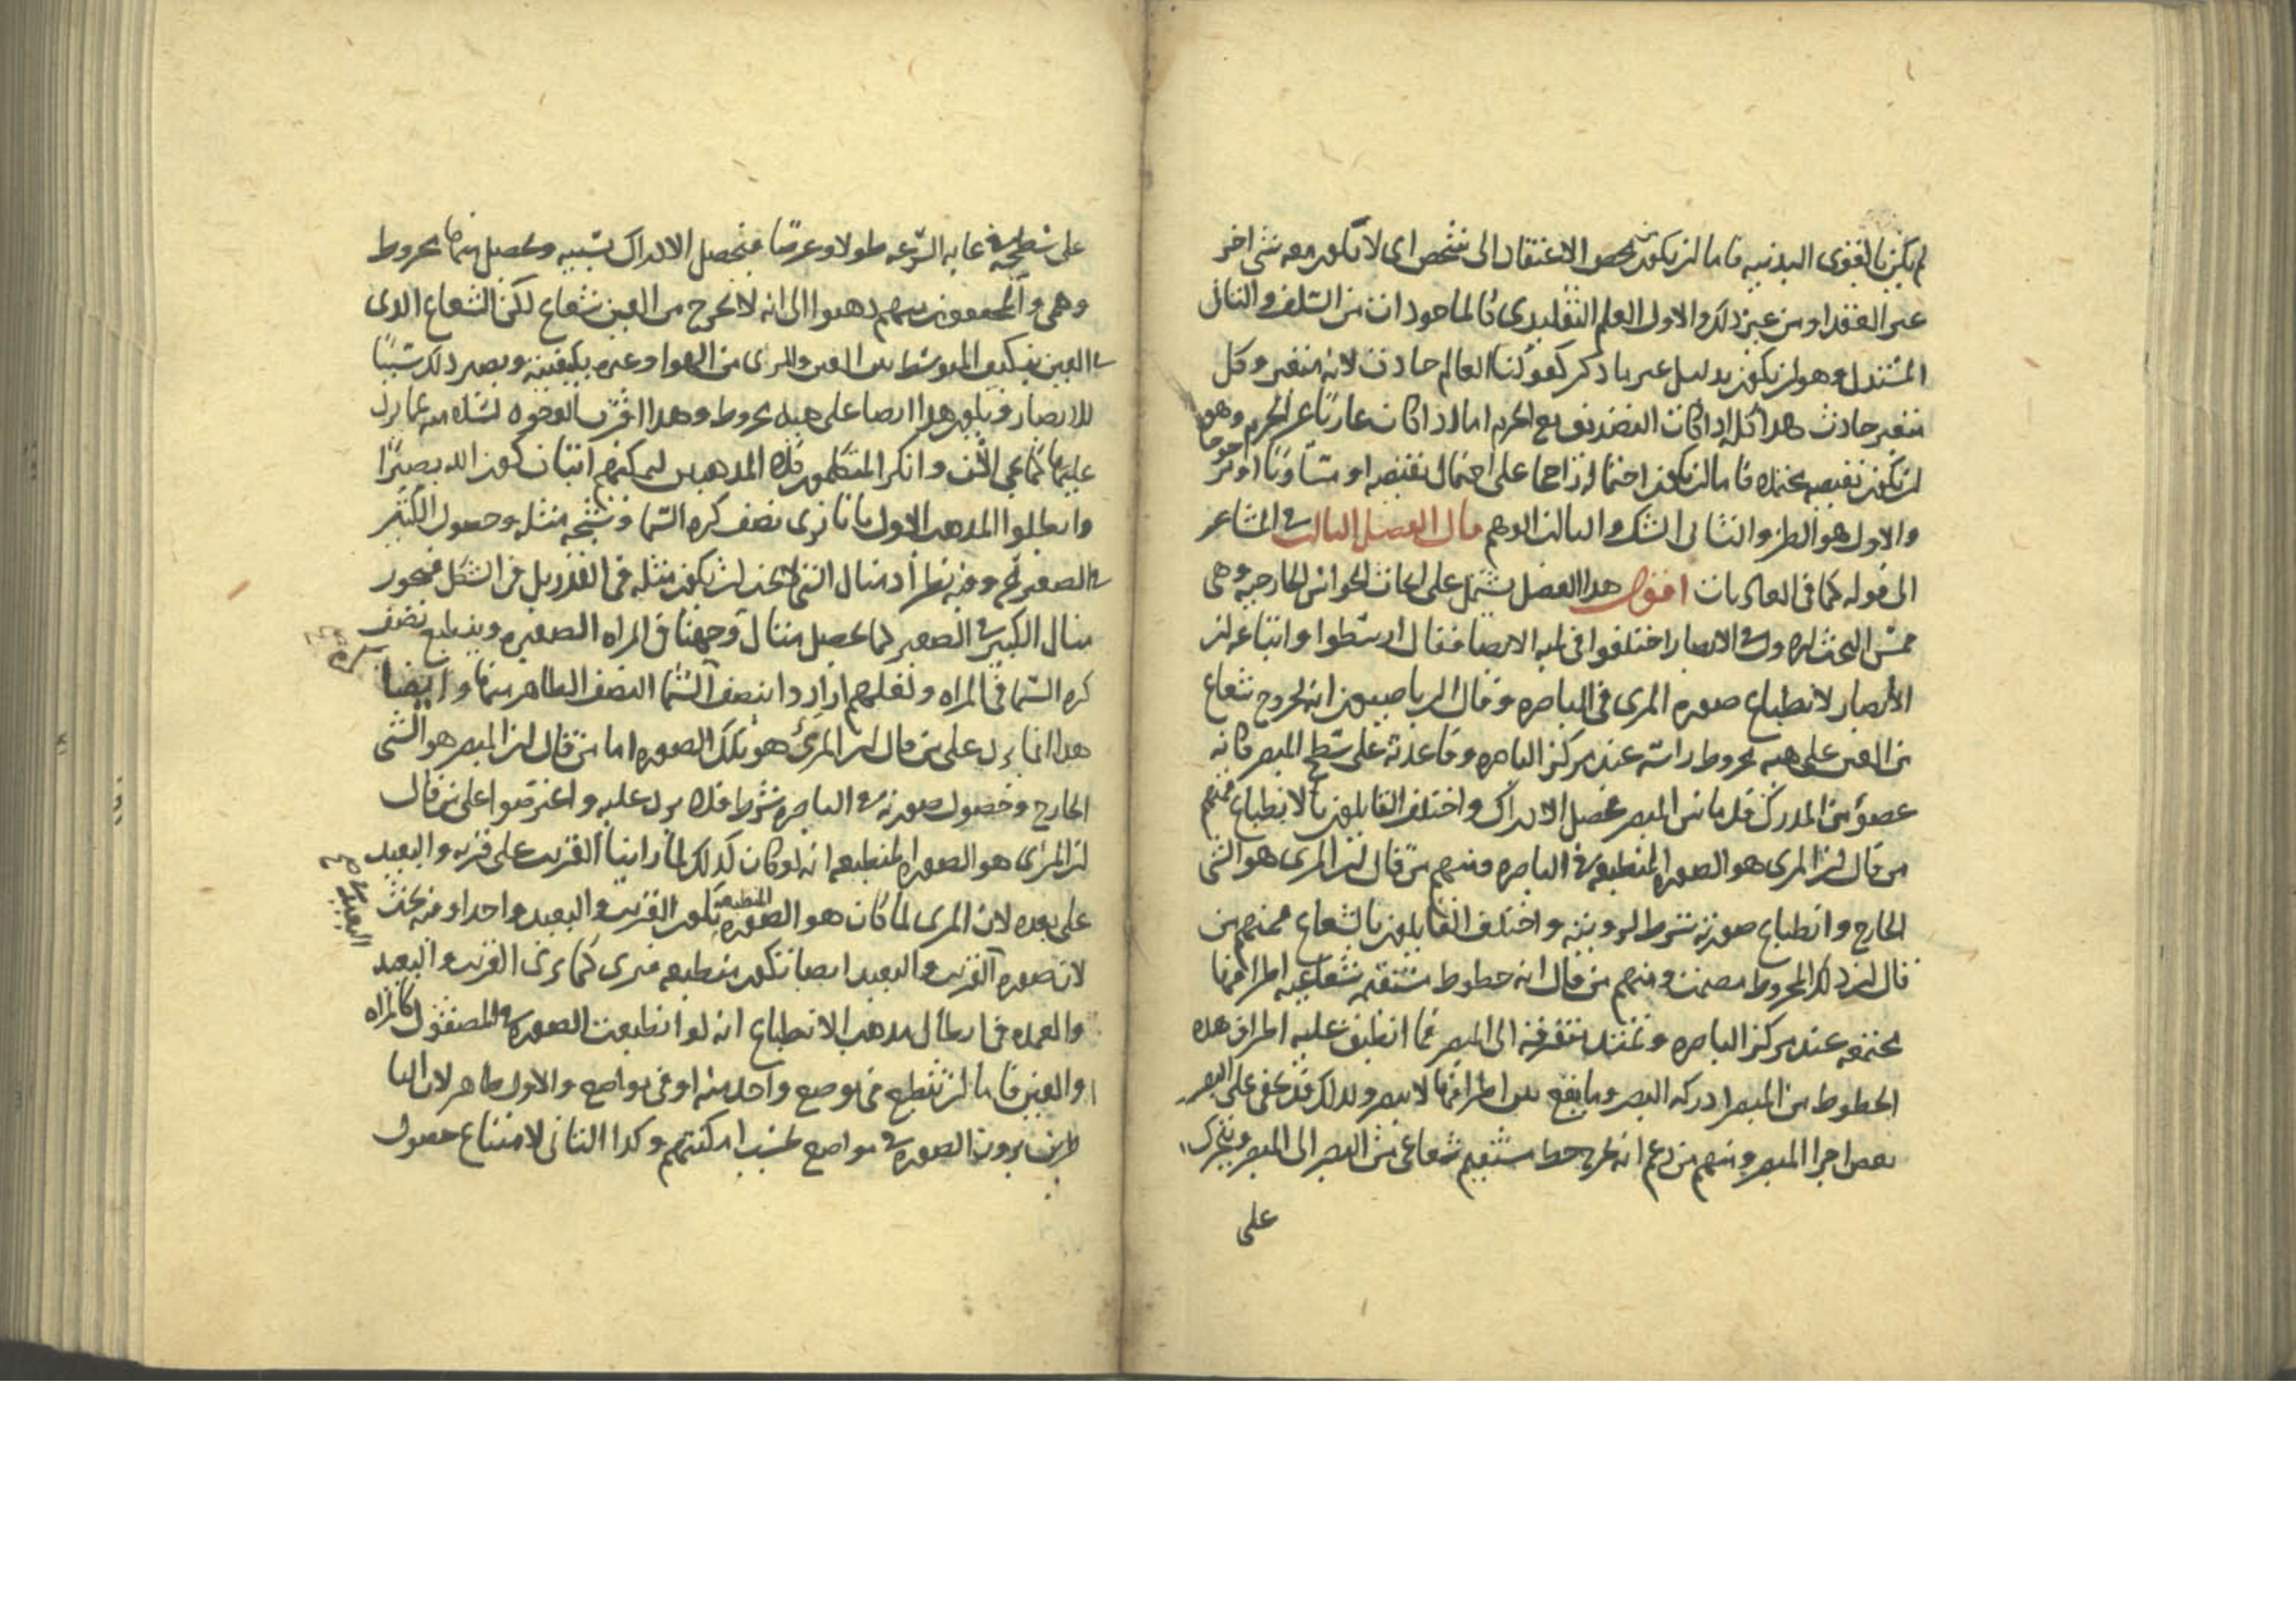 لم يكن بالقوى البدنيه فاما ان يكون محض الاعتقاد الى شخص اى لا يكون معه شى اخر
غير العقد او من غير ذلك والاول العلم التقليدى كالماخوذات من السلف والثانى
المستدل وهو ان يكون بدليل غير ما ذكر كقولنا العالم حادث لانه متغير وكل
متغير حادث هذا كله اذا كان التصديق مع الجزم اما اذا كان عاريا عن الجزم وهو
ان يكون نقيضه عنده فاما ان يكون احتماله راجحا على احتمال نقيضه او متساويا او مرجوحا
والاول هو الظن والثانى الشك والثالث الوهم قال الفصل الثالث فى المشاعر
الى قوله كما فى العاديات اقول هذا الفصل يشتمل على ابحاث الحواس الخارجيه وهى
خمس البحث الاول فى الابصار اختلفوا فى الابصار فقال ارسطوا واتباعه ان
الابصار لانطباع صوره المرى فى الباصره وقال الرياضيون انه بخروج شعاع
من العين على هيه مخروط راسه عند مركز الباصره وقاعدته على سطح المبصر كانه
عضو من المدرك فلما مس المبصر يحصل الادراك واختلف القايلون بالانطباع فمنهم
من قال ان المرى هو الصوره المنطبعه فى الباصره ومنهم من قال ان المرى هو الشى
الخارج وانطباع صورته شرط لرويته واختلف القايلون بالشعاع فمنهم من
قال ان ذلك المخروط مصمت ومنهم من قال انه خطوط مستقيمه شعاعيه اطرافها
مجتمعه عند مركز الباصره وتمتد متفرقه الى المبصر فما انطبق عليه اطراف هذه
الخطوط من المبصر ادركه البصر وما يقع بين اطرافها لا يبصر ولذلك قد يخفى على البصر
بعض اجزا المبصر ومنهم من زعم انه يخرج خط مستقيم شعاعى من البصر الى المبصر ويتحرك
على
على سطحه فى غايه السرعه طولا وعرضا فيحصل الادراك بسببه ويحصل منها مخروط
وهمى والمحققون منهم ذهبوا الى انه لا يخرج من العين شعاع لكن الشعاع الذى
فى العين يتكيف المتوسط بين العين والمرى من الهوا وغيره بكيفيته ويصير ذلك سببا
للابصار ويكون هذا ايضا على هيه مخروط وهذا اقرب الوجوه
وانكر المتكلمون هذه المذهبين ليمكنهم اثبات كون الله بصيرا
وابطلوا المذهب الاول بانا نرى نصف كره السما وشبحه مثله وحصول الكبير
فى الصغير مح وفيه نظر اذ مثال الشى لا يجب ان يكون مثله فى القدر بل فى الشكل فيجوز
مثال الكبير فى الصغير كما يحصل مثال وجهنا فى المراه الصغيره وينطبع نصف
كره السما فى المراه ولعلهم ارادوا بنصف السما النصف الظاهر منها وايضا
هذا انما يرد على من قال ان المرئ هو تلك الصوره اما من قال ان المبصر هو الشى
الخارج وحصول صورته فى الباصره شرط فلا يرد عليه واعترضوا على من قال
ان المرى هو الصوره المنطبعه انه لو كان كذلك لما راينا القريب على قربه والبعيد
على بعده لان المرى لما كان هو الصوره المنطبعه يكون القريب والبعيد واحدا وفيه بحث
لان صوره القريب والبعيد ايضا تكون منطبعه فيرى كما يرى القريب والبعيد
والعمده فى ابطال مذهب الانطباع انه لو انطبعت الصوره فى المصقول كالمراه
والعين فاما ان تنطبع فى موضع واحد منه او فى مواضع والاول ظاهر لان النا
ظرين يرون الصوره فى مواضع بحسب امكنتهم وكذا الثانى لامتناع حصول